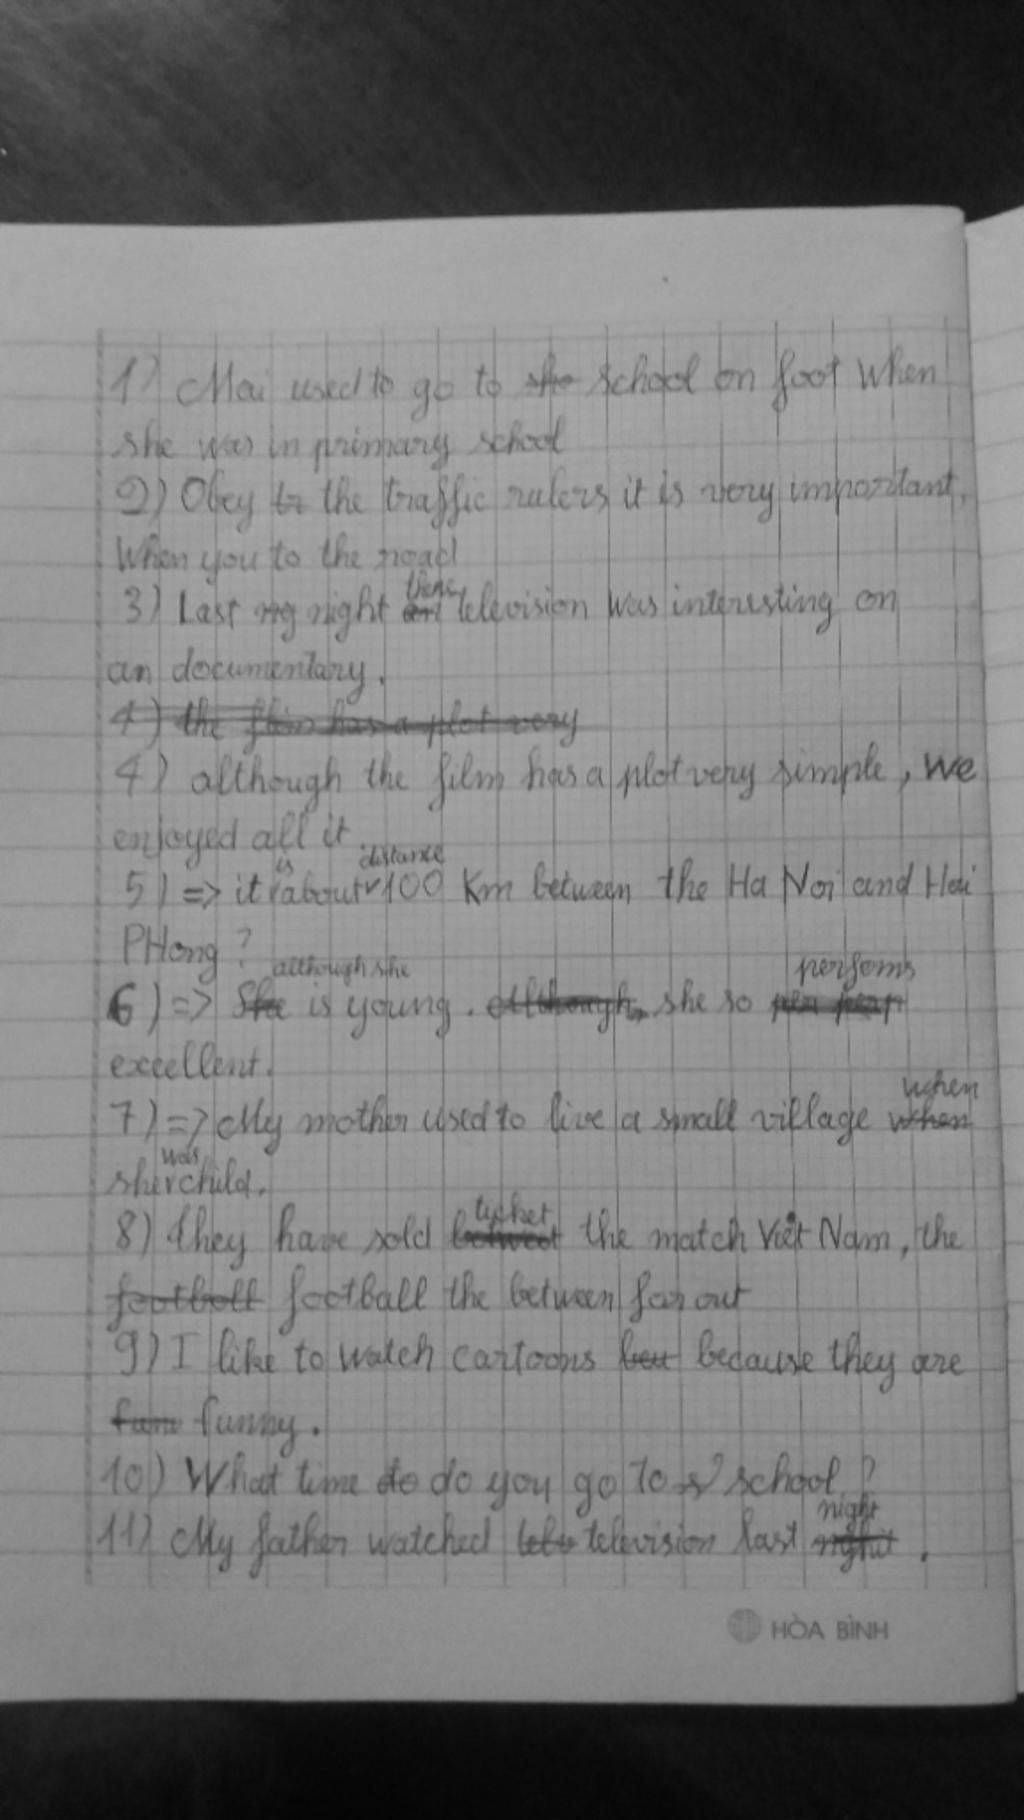 1) Mai used to go to she school on foot when
she was in primary school
2) Obey tr the traffic rulers it is very important,
When you to the road
3) Last ng night there television was interesting on
an documentary.
4) the film has a plot very
4) although the film has a plot very simple, we
enjoyed all it
5) => it is about distance 100 Km between the Ha Noi and Hai
PHong ?
6) => She although she is young. although, she so performs
excellent.
7) => My mother used to live a small village when when
she was child.
8) they have sold between ticket the match Việt Nam, the
football football the between far out
9) I like to watch cartoons beu because they are
fum funny.
10) What time do do you go to s school ?
11) My father watched tele television last night night.
HÒA BÌNH